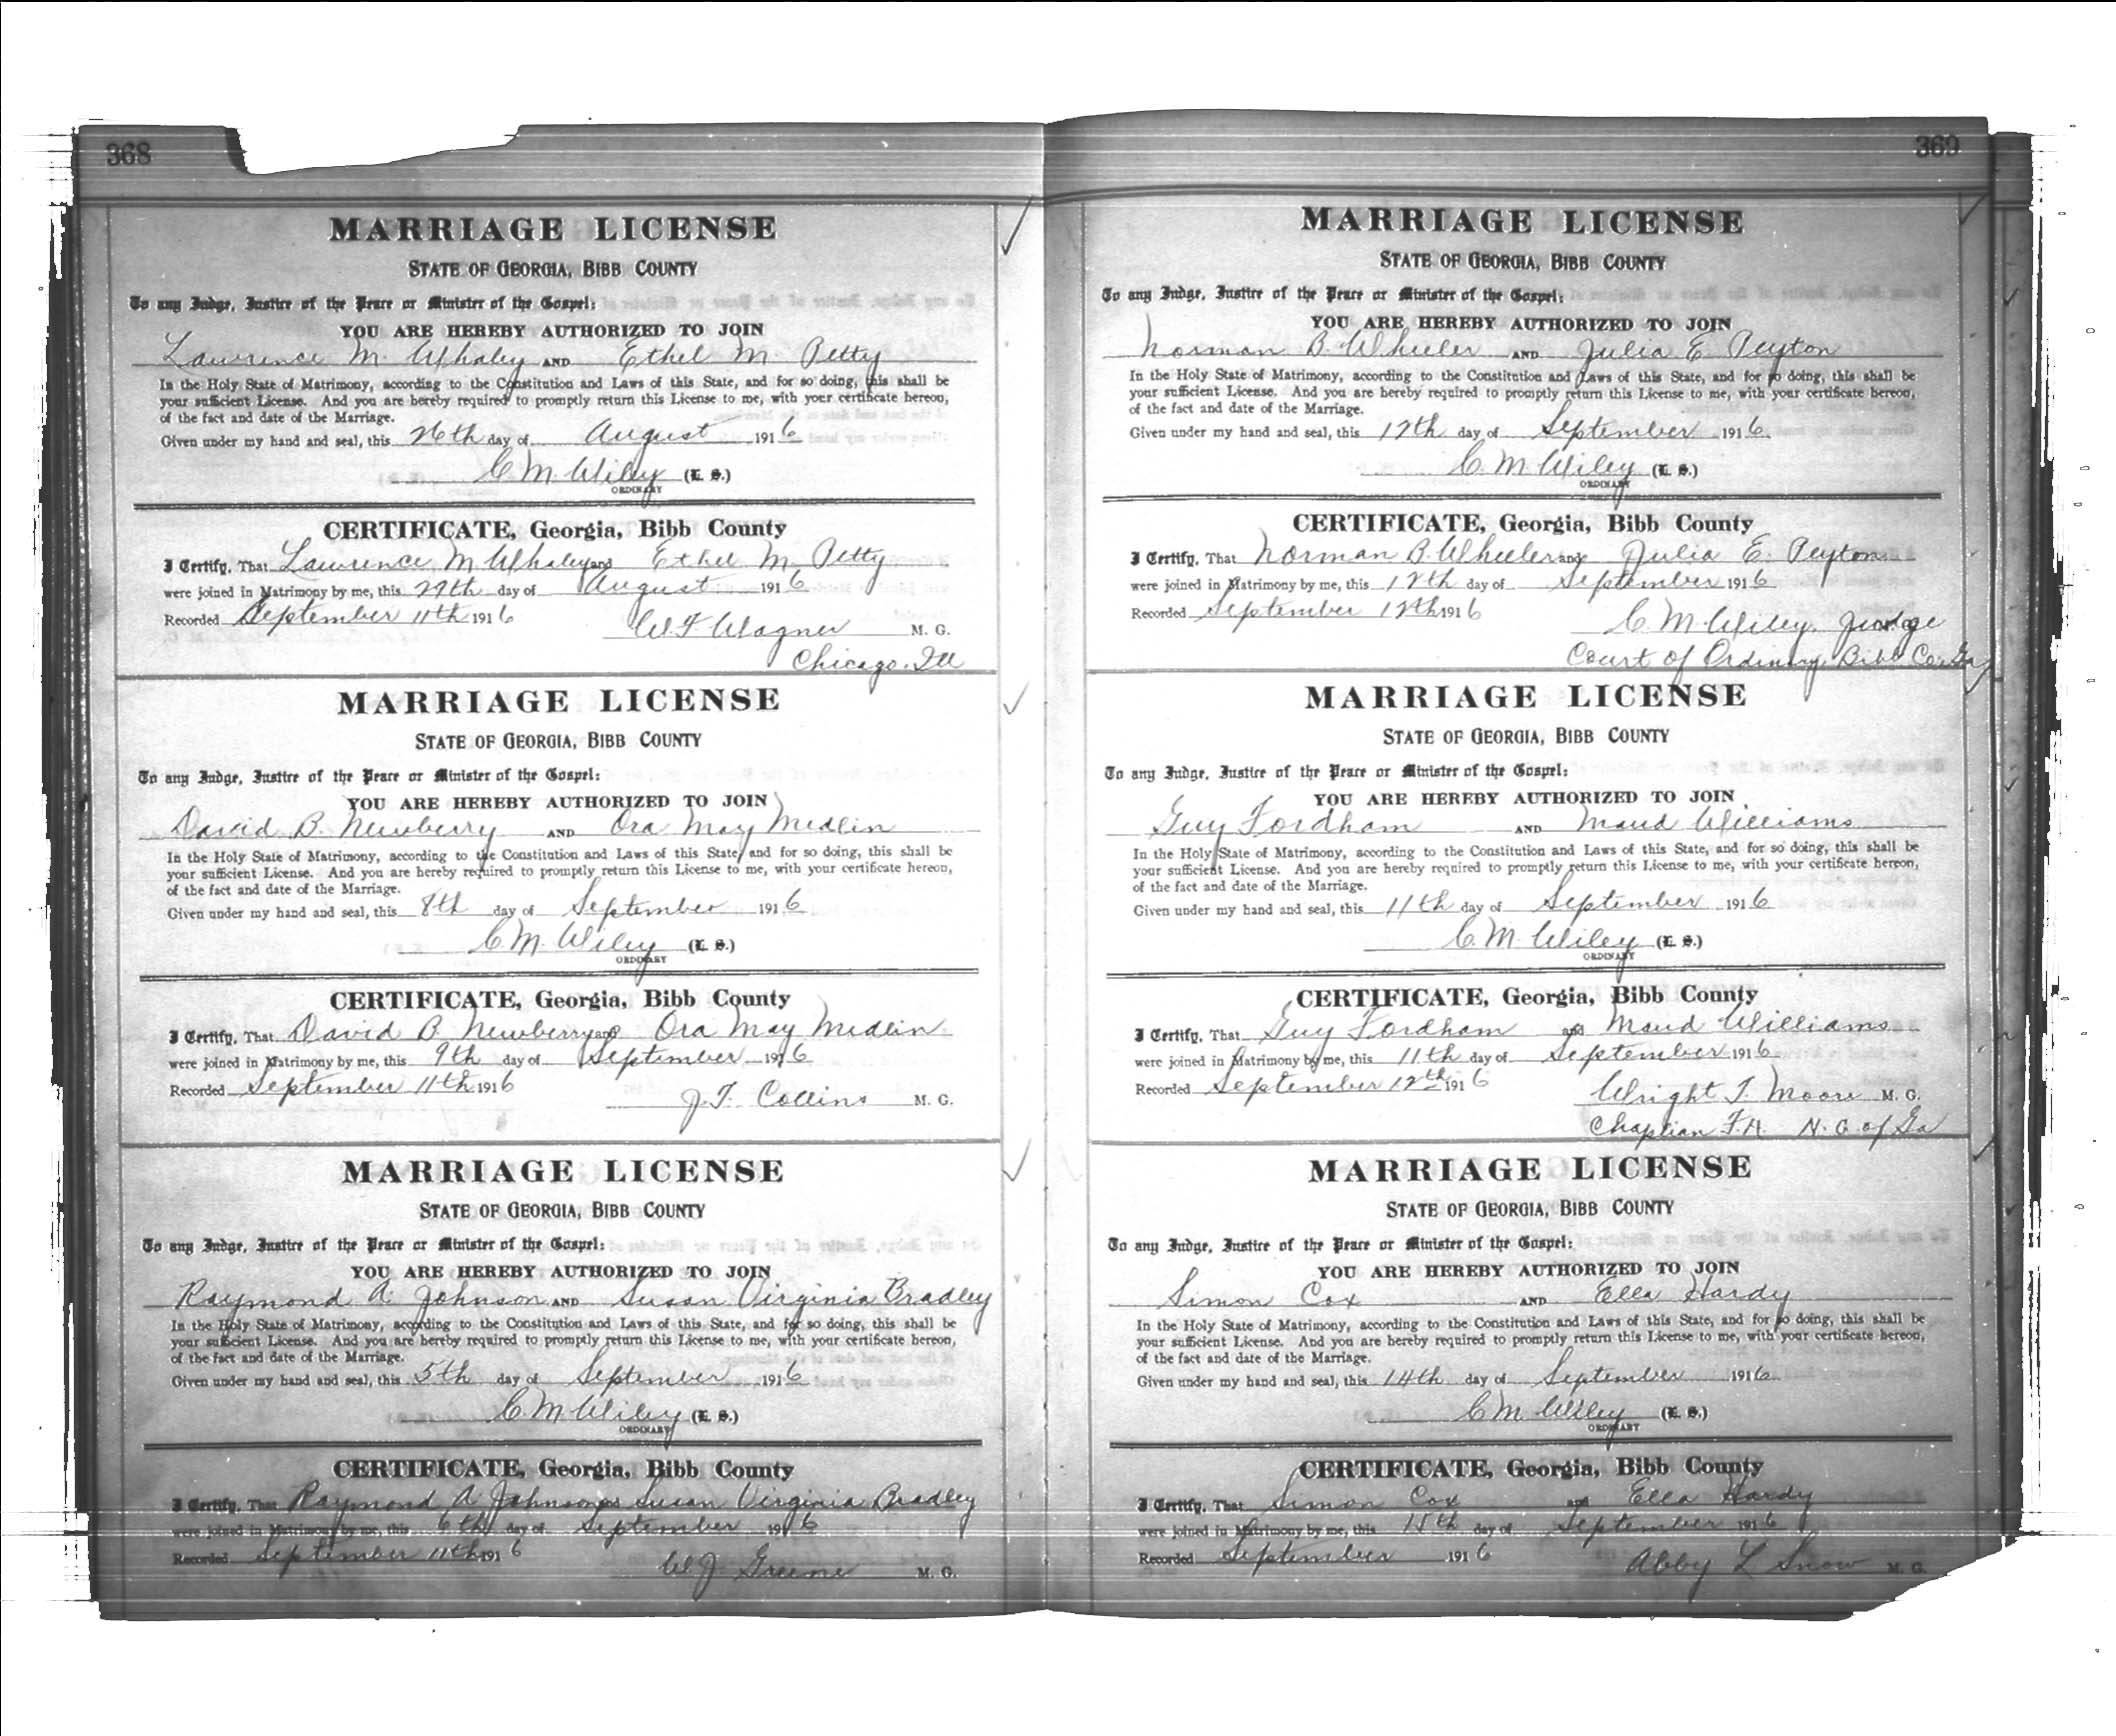 368
MARRIAGE LICENSE
STATE OF GEORGIA, BIBB COUNTY
To any Judge, Justice of the Peace or Minister of the Gospel:
YOU ARE HEREBY AUTHORIZED TO JOIN
Lawrence M. Whaley AND Ethel M. Petty
In the Holy State of Matrimony, according to the Constitution and Laws of this State, and for so doing, this shall be
your sufficient License. And you are hereby required to promptly return this License to me, with your certificate hereon,
of the fact and date of the Marriage.
Given under my hand and seal, this 26th day of August 1916
C. M. Wiley (L. S.)
ORDINARY
CERTIFICATE, Georgia, Bibb County
I Certify, That Lawrence M Whaley and Ethel M. Petty
were joined in Matrimony by me, this 27th day of August 1916
Recorded September 11th 1916 W F Wagner M. G.
Chicago. Ill
MARRIAGE LICENSE
STATE OF GEORGIA, BIBB COUNTY
To any Judge, Justice of the Peace or Minister of the Gospel:
YOU ARE HEREBY AUTHORIZED TO JOIN
David B. Newberry AND Ora May Medlin
In the Holy State of Matrimony, according to the Constitution and Laws of this State, and for so doing, this shall be
your sufficient License. And you are hereby required to promptly return this License to me, with your certificate hereon,
of the fact and date of the Marriage.
Given under my hand and seal, this 8th day of September 1916
C. M. Wiley (L. S.)
ORDINARY
CERTIFICATE, Georgia, Bibb County
I Certify, That David B Newberry and Ora May Medlin
were joined in Matrimony by me, this 9th day of September 1916
Recorded September 11th 1916 J. T. Collins M. G.
MARRIAGE LICENSE
STATE OF GEORGIA, BIBB COUNTY
To any Judge, Justice of the Peace or Minister of the Gospel:
YOU ARE HEREBY AUTHORIZED TO JOIN
Raymond A. Johnson AND Susan Virginia Bradley
In the Holy State of Matrimony, according to the Constitution and Laws of this State, and for so doing, this shall be
your sufficient License. And you are hereby required to promptly return this License to me, with your certificate hereon,
of the fact and date of the Marriage.
Given under my hand and seal, this 5th day of September 1916
C. M. Wiley (L. S.)
ORDINARY
CERTIFICATE, Georgia, Bibb County
I Certify, That Raymond A Johnson and Susan Virginia Bradley
were joined in Matrimony by me, this 6th day of September 1916
Recorded September 11th 1916 W. J. Greene M. G.
369
MARRIAGE LICENSE
STATE OF GEORGIA, BIBB COUNTY
To any Judge, Justice of the Peace or Minister of the Gospel:
YOU ARE HEREBY AUTHORIZED TO JOIN
Norman B. Wheeler AND Julia E. Peyton
In the Holy State of Matrimony, according to the Constitution and Laws of this State, and for so doing, this shall be
your sufficient License. And you are hereby required to promptly return this License to me, with your certificate hereon,
of the fact and date of the Marriage.
Given under my hand and seal, this 12th day of September 1916
C. M. Wiley (L. S.)
ORDINARY
CERTIFICATE, Georgia, Bibb County
I Certify, That Norman B. Wheeler and Julia E. Peyton
were joined in Matrimony by me, this 12th day of September 1916
Recorded September 12th 1916 C. M. Wiley, Judge
Court of Ordinary, Bibb Co. Ga
MARRIAGE LICENSE
STATE OF GEORGIA, BIBB COUNTY
To any Judge, Justice of the Peace or Minister of the Gospel:
YOU ARE HEREBY AUTHORIZED TO JOIN
Guy Fordham AND Maud Williams
In the Holy State of Matrimony, according to the Constitution and Laws of this State, and for so doing, this shall be
your sufficient License. And you are hereby required to promptly return this License to me, with your certificate hereon,
of the fact and date of the Marriage.
Given under my hand and seal, this 11th day of September 1916
C. M. Wiley (L. S.)
ORDINARY
CERTIFICATE, Georgia, Bibb County
I Certify, That Guy Fordham and Maud Williams
were joined in Matrimony by me, this 11th day of September 1916
Recorded September 12th 1916 Wright T. Moore M. G.
Chaplian F. A. N. G. of Ga
MARRIAGE LICENSE
STATE OF GEORGIA, BIBB COUNTY
To any Judge, Justice of the Peace or Minister of the Gospel:
YOU ARE HEREBY AUTHORIZED TO JOIN
Simon Cox AND Ella Hardy
In the Holy State of Matrimony, according to the Constitution and Laws of this State, and for so doing, this shall be
your sufficient License. And you are hereby required to promptly return this License to me, with your certificate hereon,
of the fact and date of the Marriage.
Given under my hand and seal, this 14th day of September 1916
C M Wiley (L. S.)
ORDINARY
CERTIFICATE, Georgia, Bibb County
I Certify, That Simon Cox and Ella Hardy
were joined in Matrimony by me, this 15th day of September 1916
Recorded September 1916 Abby L Snow M. G.